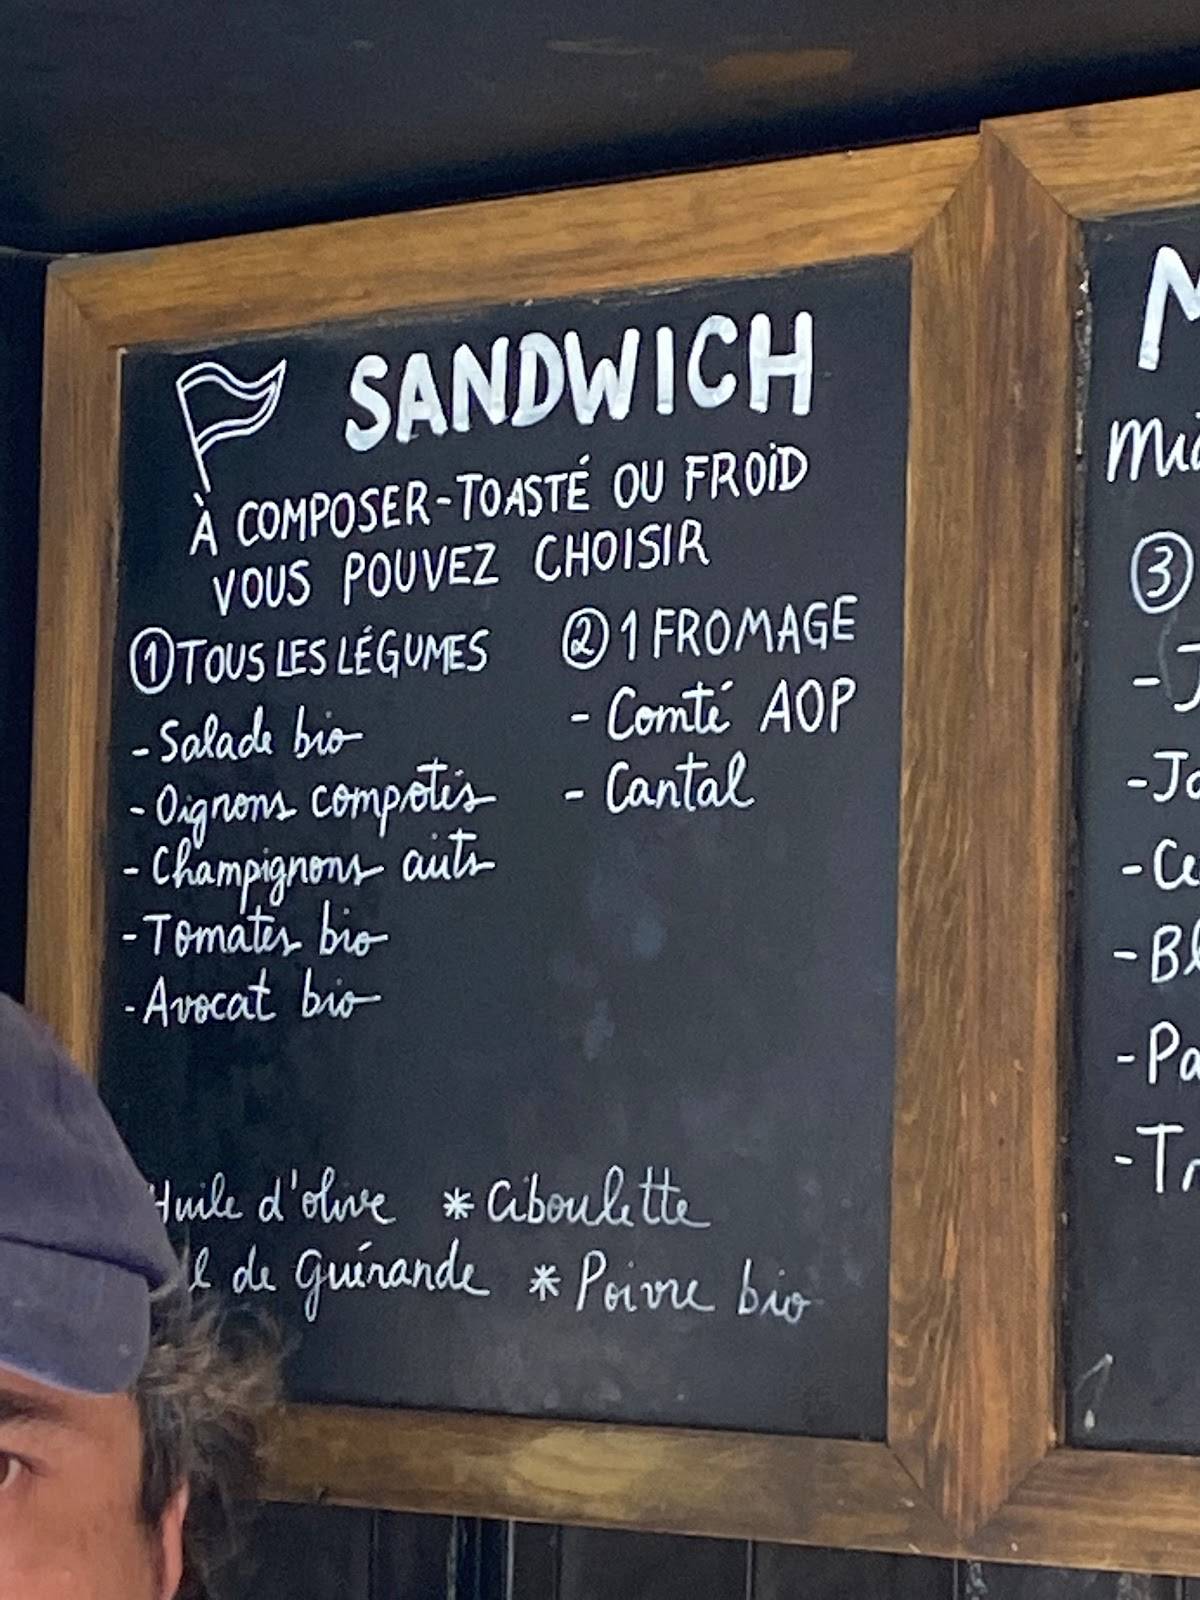 SANDWICH
À COMPOSER-TOASTÉ OU FROID
VOUS POUVEZ CHOISIR
① TOUS LES LÉGUMES
- Salade bio
- Oignons compotés
- Champignons cuits
- Tomates bio
- Avocat bio
② 1 FROMAGE
- Comté AOP
- Cantal
Huile d'olive * Ciboulette
de Guérande * Poivre bio
③